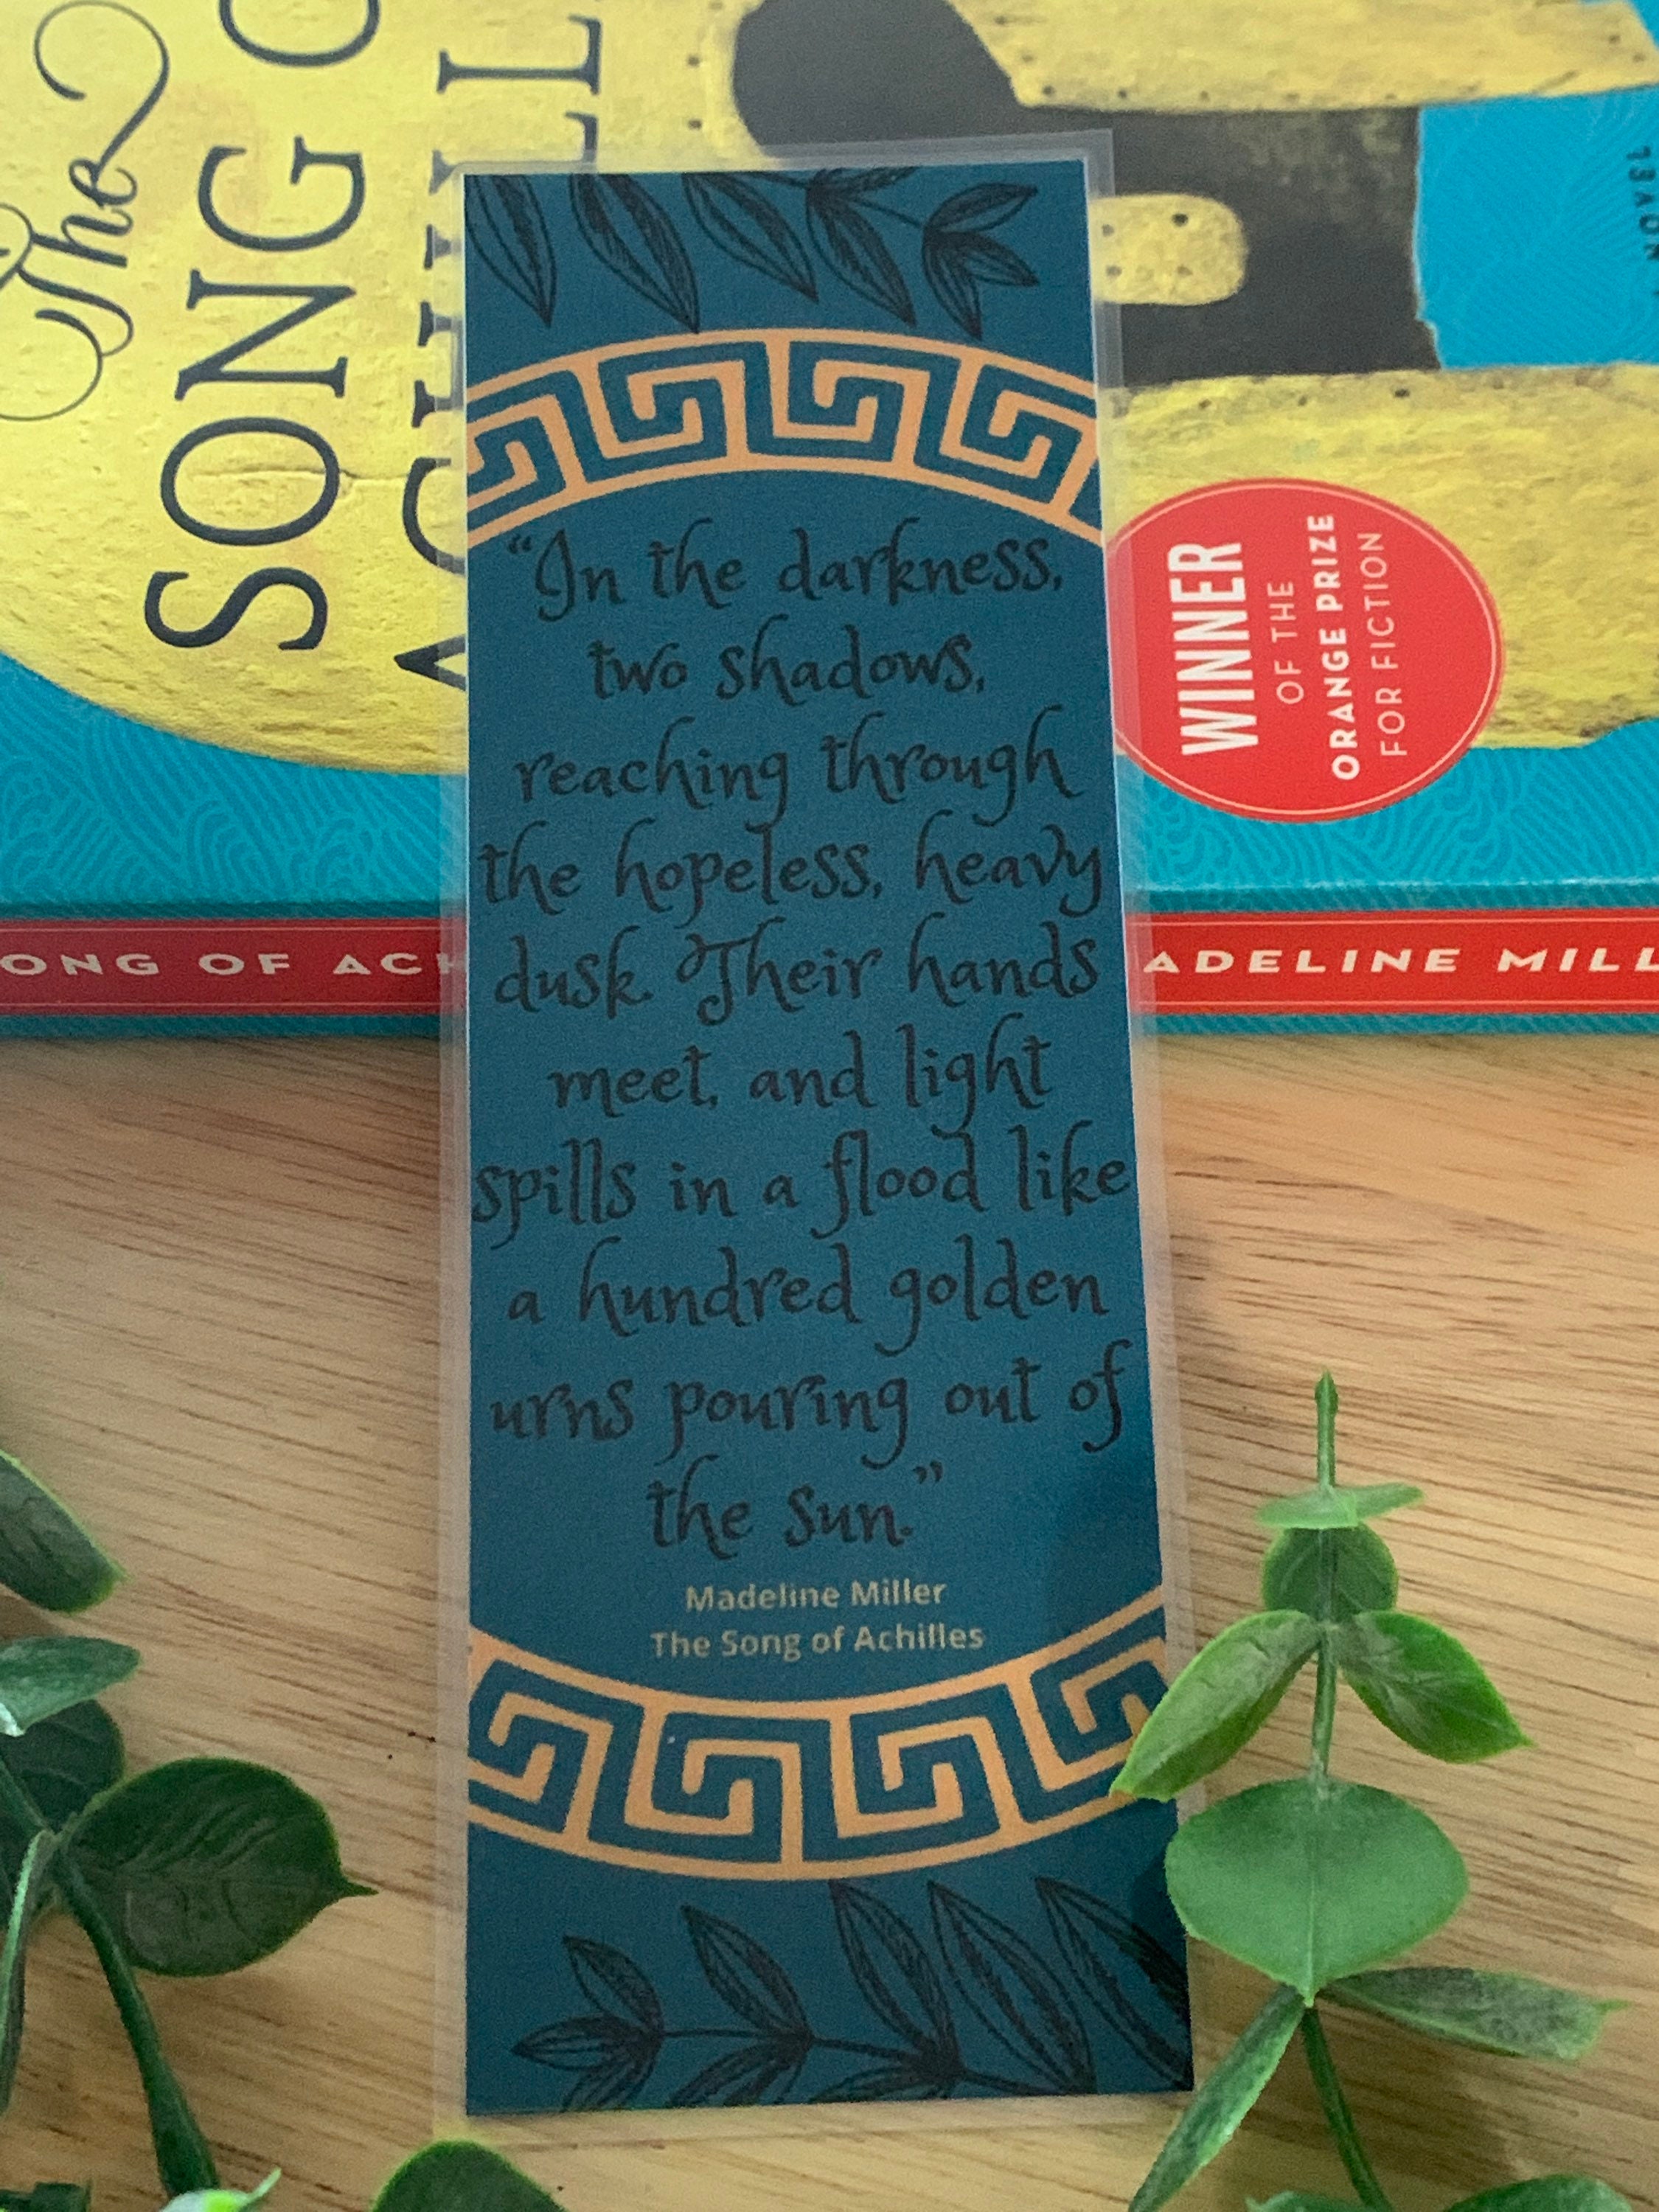 The
SONG O
ACHILL
"In the darkness,
two shadows,
reaching through
the hopeless, heavy
dusk. Their hands
meet, and light
spills in a flood like
a hundred golden
urns pouring out of
the sun."
Madeline Miller
The Song of Achilles
WINNER
OF THE
ORANGE PRIZE
FOR FICTION
ONG OF ACH
ADELINE MILL